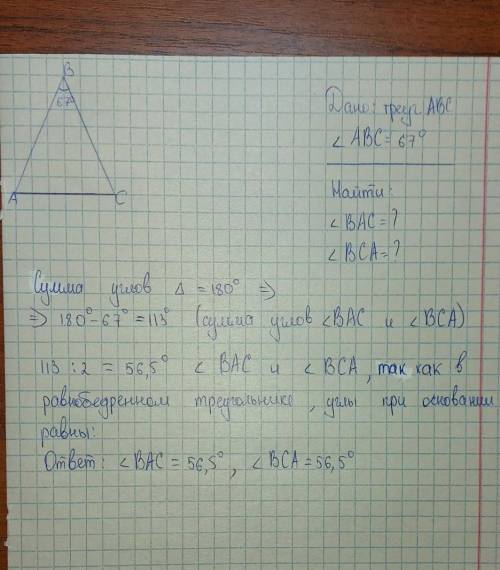 B
67
A
C
Дано: треуг ABC
∠ ABC = 67°
Найти:
∠ BAC = ?
∠ BCA = ?
Сумма углов Δ = 180° ⇒
⇒ 180° - 67° = 113° (сумма углов ∠BAC и ∠BCA)
113 : 2 = 56,5° ∠ BAC и ∠ BCA, так как в
равнобедренном треугольнике, углы при основании
равны:
Ответ: ∠BAC = 56,5°, ∠BCA = 56,5°